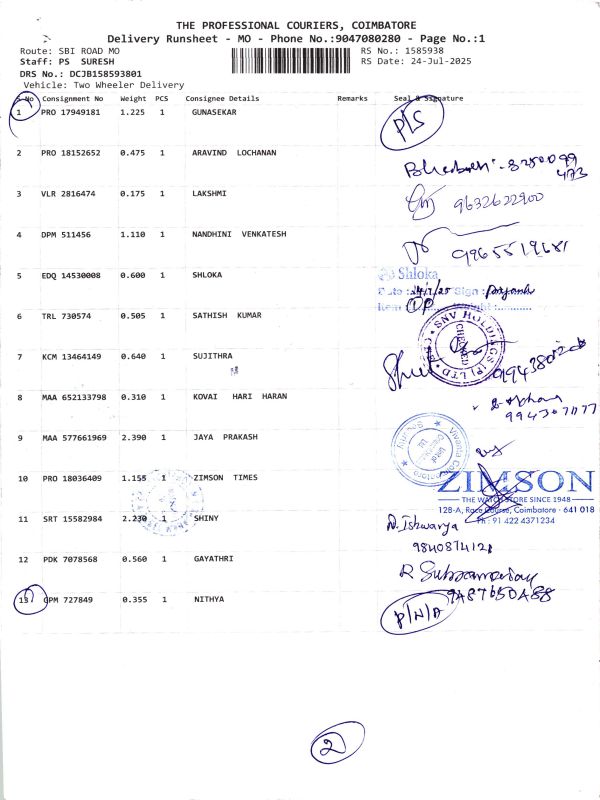 THE PROFESSIONAL COURIERS, COIMBATORE
Delivery Runsheet - MO - Phone No.:9047080280 - Page No.:1
Route: SBI ROAD MO
RS No.: 1585938
Staff: PS SURESH
RS Date: 24-Jul-2025
DRS No.: DCJB158593801
Vehicle: Two Wheeler Delivery
S No Consignment No Weight PCS Consignee Details Remarks Seal & Signature
1 PRO 17949181 1.225 1 GUNASEKAR P/S
2 PRO 18152652 0.475 1 ARAVIND LOCHANAN
3 VLR 2816474 0.175 1 LAKSHMI 9632622900
4 DPM 511456 1.110 1 NANDHINI VENKATESH 9965519681
5 EDQ 14530008 0.600 1 SHLOKA Shloka
Date : 24/7/25 Sign :
6 TRL 730574 0.505 1 SATHISH KUMAR
SNV HOLDINGS (P) LTD
7 KCM 13464149 0.640 1 SUJITHRA
8 MAA 652133798 0.310 1 KOVAI HARI HARAN
9 MAA 577661969 2.390 1 JAYA PRAKASH
10 PRO 18036409 1.155 1 ZIMSON TIMES ZIMSON
THE WATCH STORE SINCE 1948
128-A, Race Course, Coimbatore - 641 018
Ph : 91 422 4371234
11 SRT 15582984 2.230 1 SHINY N. Ishwarya
9840874121
12 PDK 7078568 0.560 1 GAYATHRI
13 GPM 727849 0.355 1 NITHYA P/N/A
2